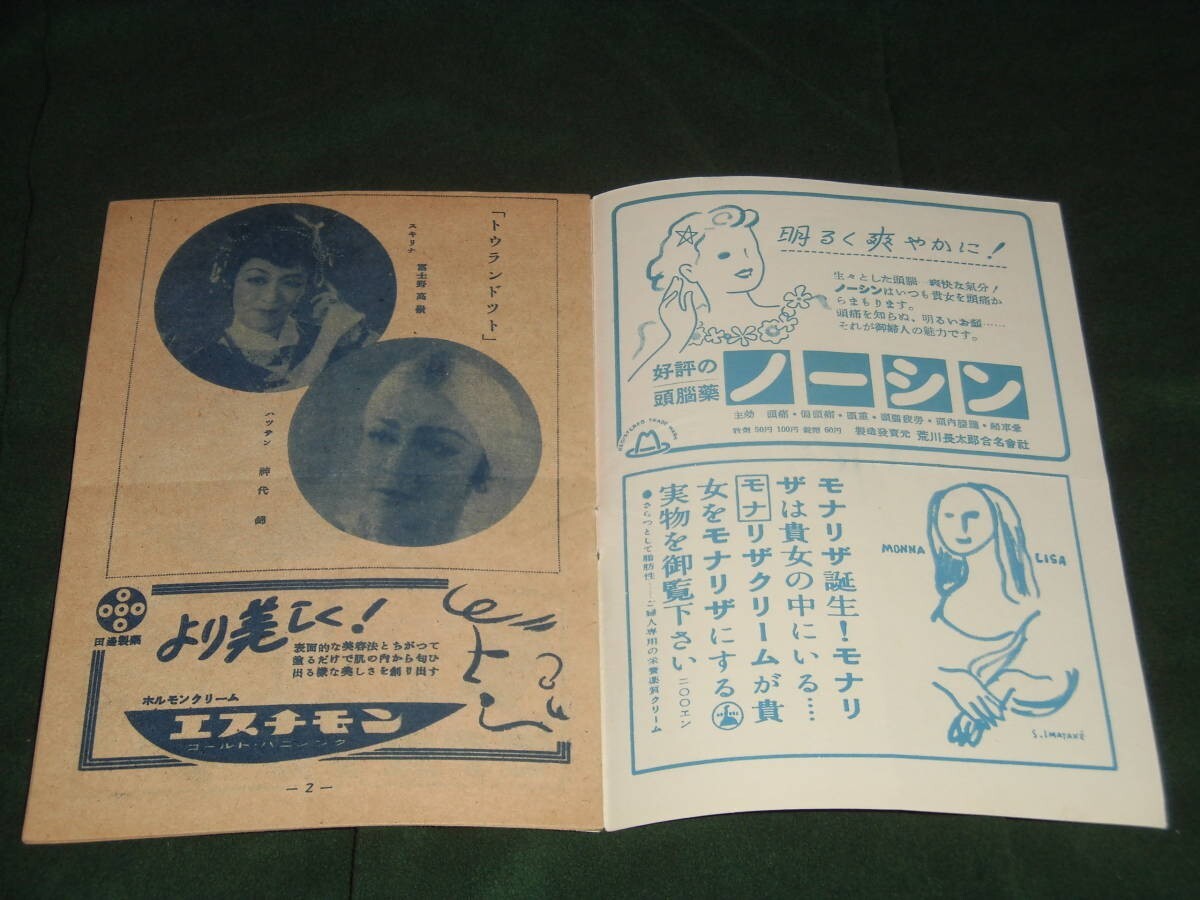 「トウランドツト」
スキリナ 冨士野高嶺
ハツテン 神代錦
田邊製藥
より美しく！
表面的な美容法とちがつて
塗るだけで肌の内から匂ひ
出る樣な美しさを創り出す
ホルモンクリーム
エスチモン
コールド・バニシング
— 2 —
明るく爽やかに！
生々とした頭腦 爽快な氣分！
ノーシンはいつも貴女を頭痛か
らまもります。
頭痛を知らぬ、明るいお顔……
それが御婦人の魅力です。
好評の
頭腦藥
ノーシン
主効 頭痛・偏頭痛・頭重・頭腦疲勞・船車暈
散劑 50円 100円 錠劑 60円 製造發賣元 荒川長太郎合名會社
REGISTERED TRADE MARK
モナリザ誕生！モナリ
ザは貴女の中にいる……
モナリザクリームが貴
女をモナリザにする
実物を御覧下さい 二〇〇エン
●さらつとして脂肪性……ご婦人専用の栄養薬質クリーム
MONNA LISA
S.IMATAKÉ